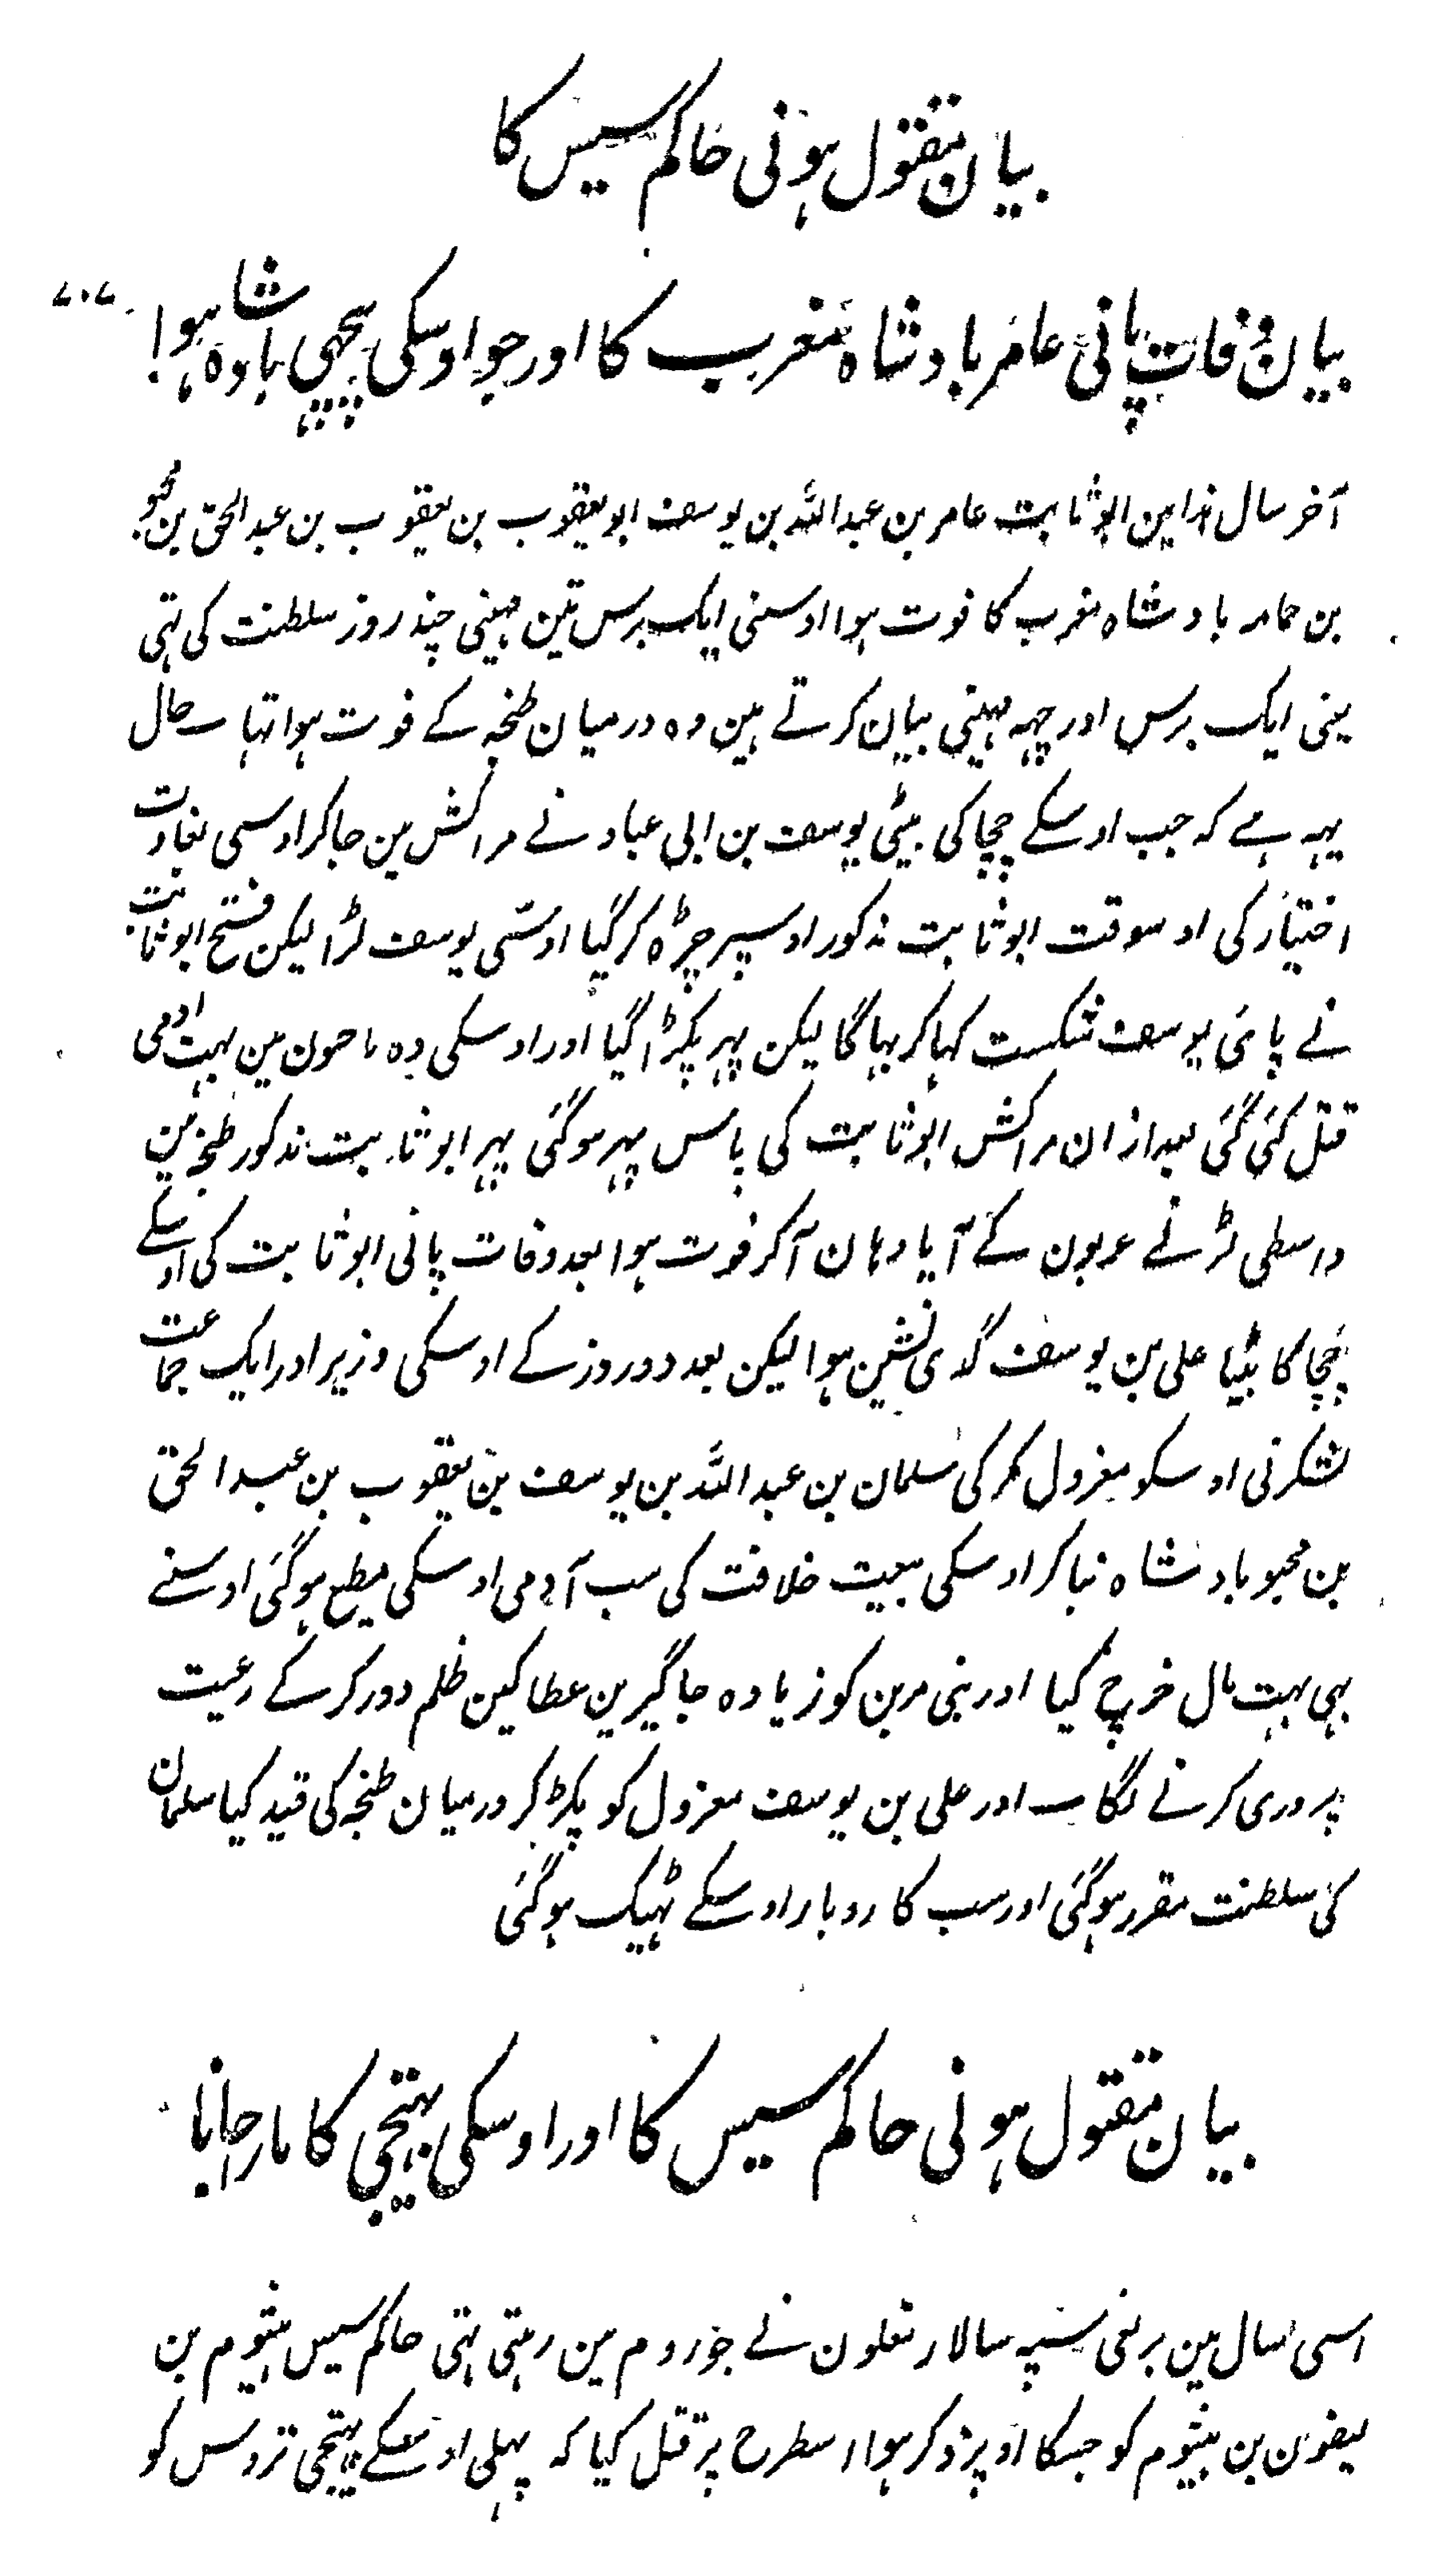 بیان مقتول ہونی حاکم سیس کا
بیان وفات پانی عامر بادشاہ مغرب کا اور جو اوسکی پیچھی بادشاہ ہوا
۷۰۷
آخر سال ہذا مین ابوثابت عامر بن عبد اللہ بن یوسف ابو یعقوب بن یعقوب بن عبد الحق بن محیو
بن حمامہ بادشاہ مغرب کا فوت ہوا اوسنی ایک برس تین مہینی چند روز سلطنت کی تہی
یعنی ایک برس اور چہہ مہینی بیان کرتے ہین وہ درمیان طنجہ کے فوت ہوا تہا حال
یہہ ہے کہ جب اوسکے چچا کی بیٹی یوسف بن ابی عباد نے مراکش مین جاکر اوسی بغاوت
اختیار کی اوسوقت ابوثابت مذکور اوسپر چڑہ کر گیا اوسّی یوسف لڑا لیکن فتح ابوثابت
نے پائی یوسف شکست کہا کر بہاگا لیکن پہر پکڑا گیا اور اوسکی ہمراہیون مین بہت ادمی
قتل کئی گئی بعد ازان مراکش ابوثابت کی پاس پہر ہوگئی پہر ابوثابت مذکور طنجہ مین
واسطی لڑنے عربون کے آیا وہان آکر فوت ہوا بعد وفات پانی ابوثابت کی اوسکے
چچا کا بیٹا علی بن یوسف گدی نشین ہوا لیکن بعد دو روز کے اوسکی وزیر اور ایک جماعت
لشکر نی اوسکو معزول کر کی سلمان بن عبد اللہ بن یوسف بن یعقوب بن عبد الحق
بن محیو بادشاہ بنا کر اوسکی بیعت خلافت کی سب آدمی اوسکی مطیع ہوگئی اوسنے
بہی بہت مال خرچ کیا اور بنی مرین کو زیادہ جاگیرین عطا کین ظلم دور کر کے رعیت
پروری کرنے لگا اور علی بن یوسف معزول کو پکڑ کر درمیان طنجہ کی قید کیا سلمان
کی سلطنت مقرر ہوگئی اور سب کاروبار اوسکے ٹہیک ہوگئی
بیان مقتول ہونی حاکم سیس کا اور اوسکی بہتیجی کا مارا جانا
اسی سال مین برلغی سپہ سالار مغلون نے جو روم مین رہتی تہی حاکم سیس ہیثوم بن
لیفون بن ہیثوم کو جسکا اوپر ذکر ہوا اسطرح پر قتل کیا کہ پہلی اوسکے بہتیجی تروس کو